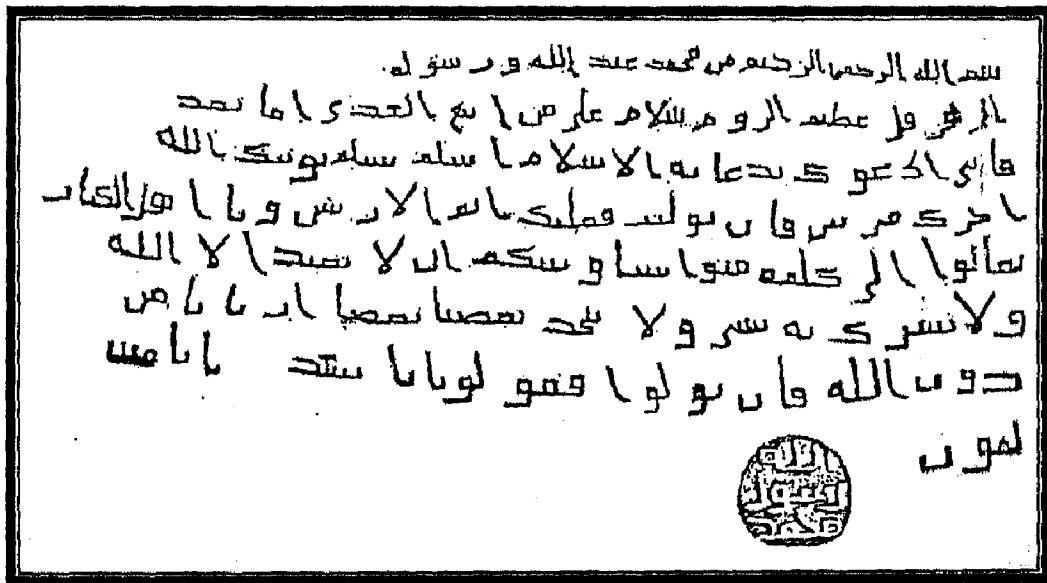 بسم الله الرحمن الرحيم من محمد عبد الله ورسوله
الى هرقل عظيم الروم سلام على من اتبع الهدى اما بعد
فانى ادعوك بدعاية الاسلام اسلم تسلم يوتيك الله
اجرك مرتين فان توليت فعليك اثم الاريسين ويا اهل الكتاب
تعالوا الى كلمه سوا بيننا وبينكم ان لا نعبد الا الله
ولا نشرك به شى ولا يتخذ بعضنا بعضا اربابا من
دون الله فان تولوا فقولوا اشهد بانا مس
لمون
الله
رسول
محمد